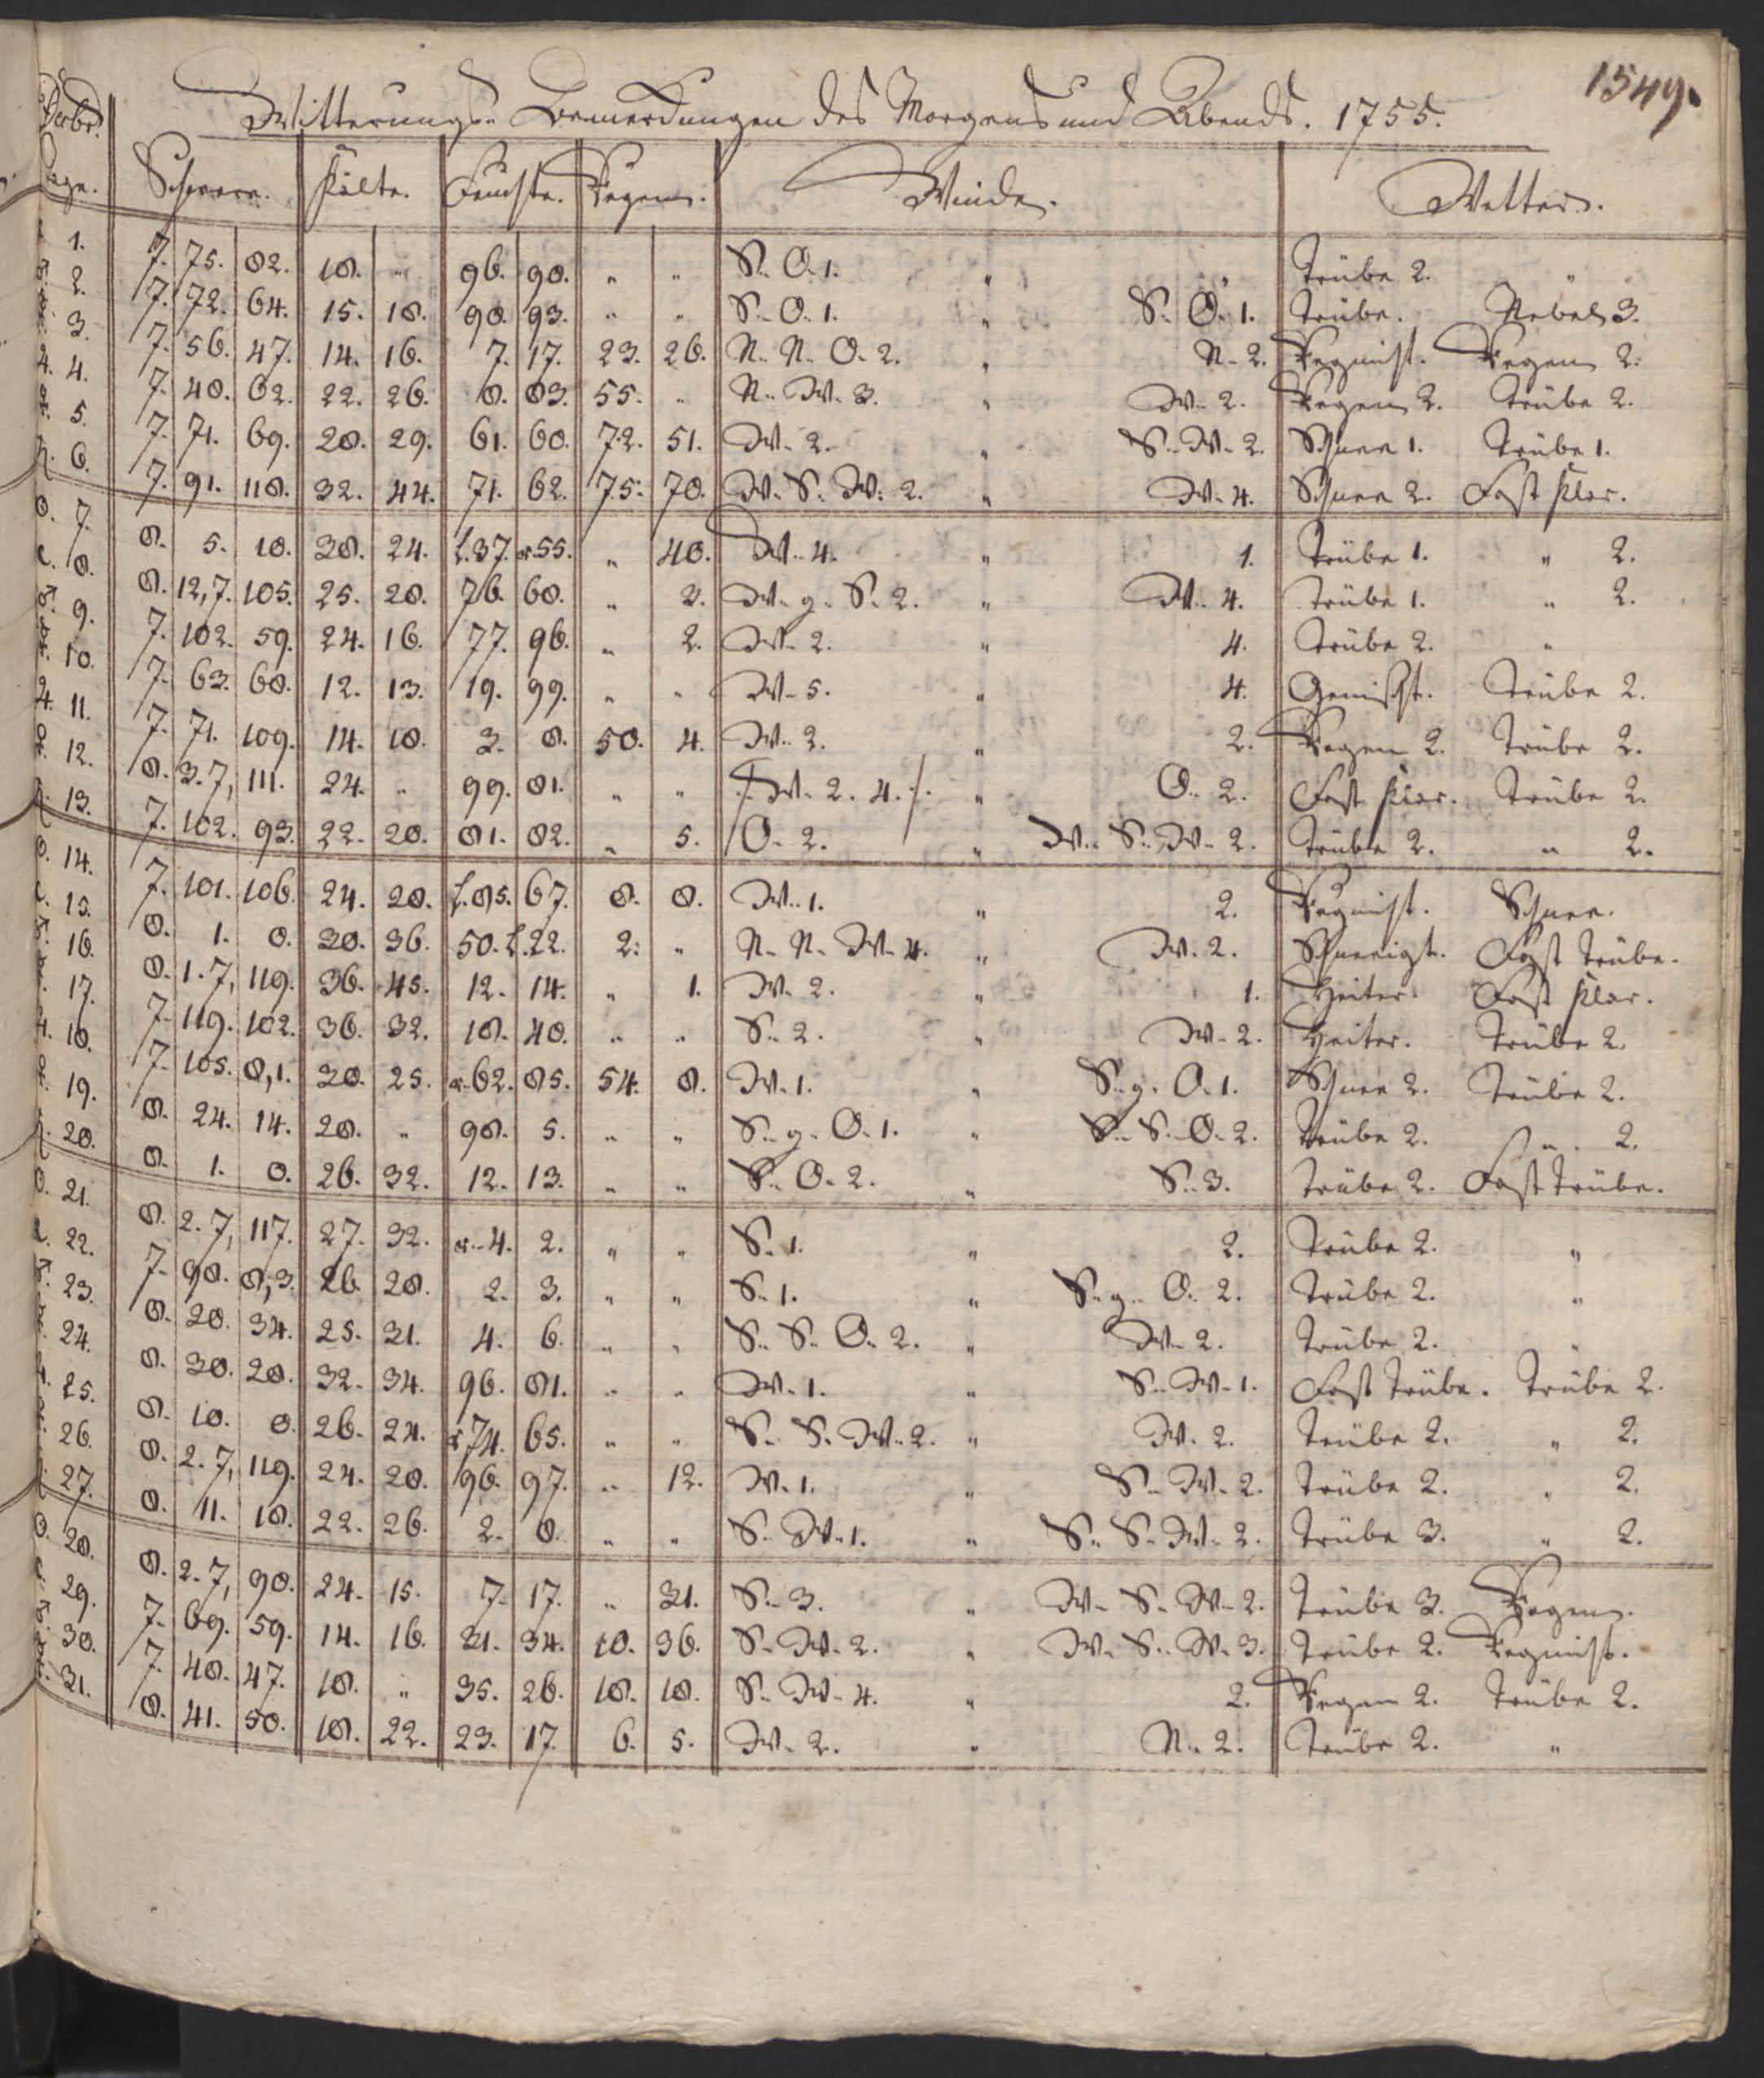 1549.
Witterungs- Bemerckungen des Morgens und Abends. 1755.
Decbr.
Tage. Schwere. Kälte. Feuchte. Regen. Winde. Wetter.
☾ 1. 7. 75. 82. 18. " 96. 98. " " S. O. 1. " " Trübe 2. "
♂ 2. 7. 72. 64. 15. 18. 98. 93. " " S. O. 1. " S. O. 1. Trübe. Nebel 3.
☿ 3. 7. 56. 47. 14. 16. 7. 17. 23. 26. N. N. O. 2. " N. 2. Regnicht. Regen 2.
♃ 4. 7. 48. 62. 22. 26. 8. 83. 55. " N. W. 3. " W. 2. Regen 2. Trübe 2.
♀ 5. 7. 71. 69. 28. 29. 61. 60. 72. 51. W. 2. " S. W. 2. Schnee 1. Trübe 1.
♄ 6. 7. 91. 118. 32. 44. 71. 62. 75. 70. W. S. W. 2. " W. 4. Schnee 2. Fast klar.
☉ 7. 8. 5. 10. 38. 24. 37. 55. " 40. W. 4. " 1. Trübe 1. " 2.
☾ 8. 8. 12, 7. 105. 25. 28. 76. 68. " 3. W. g. S. 2. " W. 4. Trübe 1. " 2.
♂ 9. 7. 102. 59. 24. 16. 77. 96. " 2. W. 2. " 4. Trübe 2. "
☿ 10. 7. 63. 68. 12. 13. 19. 99. " " W. 5. " 4. Gemischt. Trübe 2.
♃ 11. 7. 71. 109. 14. 18. 3. 8. 50. 4. W. 2. " 2. Regen 2. Trübe 2.
♀ 12. 8. 3. 7, 111. 24. " 99. 81. " " /: W. 2. 4. :/ " O. 2. Fast klar. Trübe 2.
♄ 13. 7. 102. 93. 22. 20. 81. 82. " 5. O. 2. " W. S. W. 2. Trübe 2. " 2.
☉ 14. 7. 101. 106. 24. 28. 85. 67. 8. 8. W. 1. " 2. Regnicht. Schnee.
☾ 15. 8. 1. 0. 30. 36. 50. 22. 2. " N. N. W. 4. " W. 2. Schneeigt. Fast trübe.
♂ 16. 8. 1. 7, 119. 36. 45. 12. 14. " 1. W. 2. " 1. Heiter. Fast klar.
☿ 17. 7. 119. 102. 36. 32. 18. 40. " " S. 2. " W. 2. Heiter. Trübe 2.
♃ 18. 7. 105. 8, 1. 30. 25. 62. 85. 54. 8. W. 1. " S. g. O. 1. Schnee 2. Trübe 2.
♀ 19. 8. 24. 14. 28. " 98. 5. " " S. g. O. 1. " S. S. O. 2. Trübe 2. " 2.
♄ 20. 8. 1. 0. 26. 32. 12. 13. " " S. O. 2. " S. 3. Trübe 2. Fast trübe.
☉ 21. 8. 2. 7, 117. 27. 32. 4. 2. " " S. 1. " 2. Trübe 2. "
☾ 22. 7. 98. 8, 3. 26. 28. 2. 3. " " S. 1. " S. g. O. 2. Trübe 2. "
♂ 23. 8. 20. 34. 25. 31. 4. 6. " " S. S. O. 2. " W. 2. Trübe 2. "
☿ 24. 8. 30. 28. 32. 34. 96. 81. " " W. 1. " S. W. 1. Fast trübe. Trübe 2.
♃ 25. 8. 10. 0. 26. 24. 74. 65. " " S. S. W. 2. " W. 2. Trübe 2. " 2.
♀ 26. 8. 2. 7, 119. 24. 20. 96. 97. " 12. W. 1. " S. W. 2. Trübe 2. " 2.
♄ 27. 8. 11. 18. 22. 26. 2. 0. " " S. W. 1. " S. S. W. 2. Trübe 3. " 2.
☉ 28. 8. 2. 7, 90. 24. 15. 7. 17. " 31. S. 3. " W. S. W. 2. Trübe 3. Regen.
☾ 29. 7. 69. 59. 14. 16. 31. 34. 10. 36. S. W. 2. " W. S. W. 3. Trübe 2. Regnicht.
♂ 30. 7. 48. 47. 18. " 35. 26. 18. 18. S. W. 4. " 2. Regen 2. Trübe 2.
☿ 31. 8. 41. 50. 18. 22. 23. 17. 6. 5. W. 2. " N. 2. Trübe 2. "